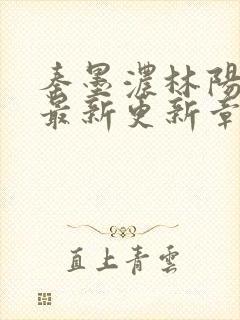 秦墨濃林陽
最新更新章
直上青雲